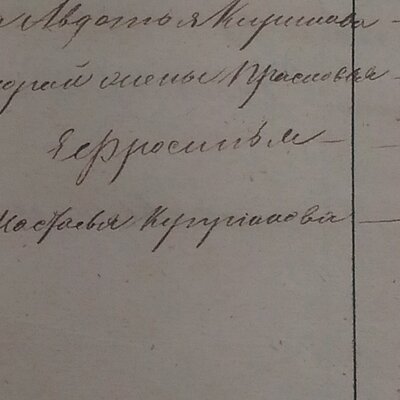 а Авдотья Кирилова
торай жены Прасковья
Ефросинья
Настасья Куприянова